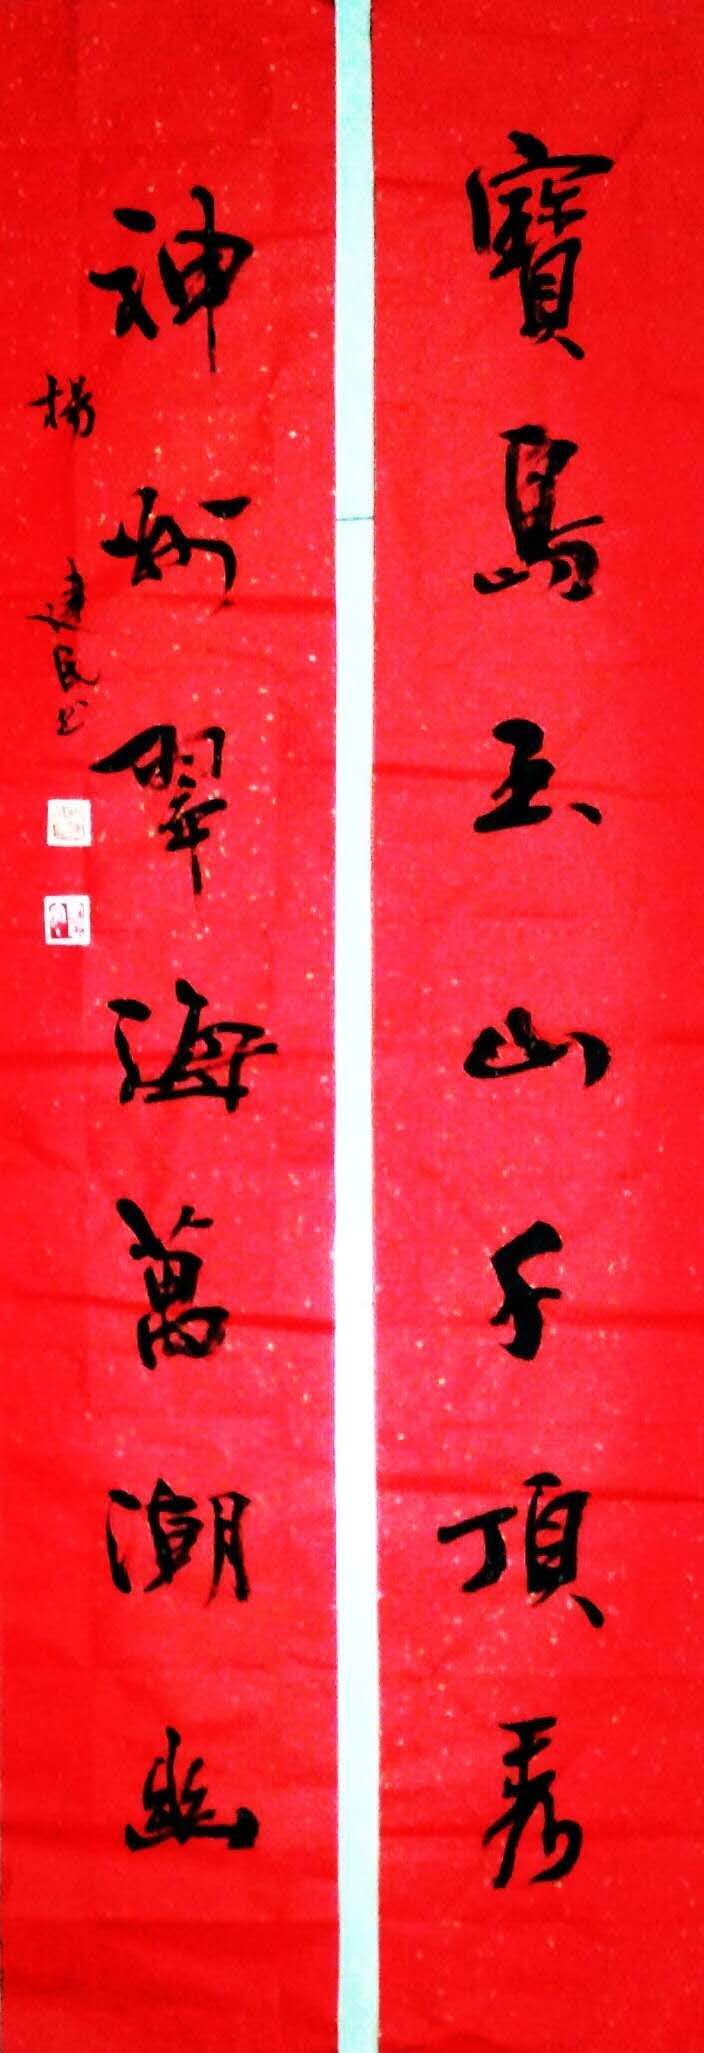 寶島玉山千頂秀
神州翠海萬潮幽
楊建民书